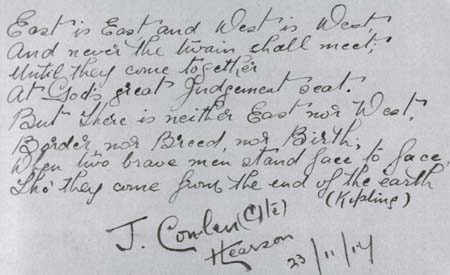 East is East and West is West,
And never the twain shall meet;
Until they come together
At God's great Judgement seat.
But there is neither East nor West,
Border, nor Breed, nor Birth;
When two brave men stand face to face,
Tho' they come from the end of the earth
(Kipling)
J. Conlen
Hearson
23/11/14